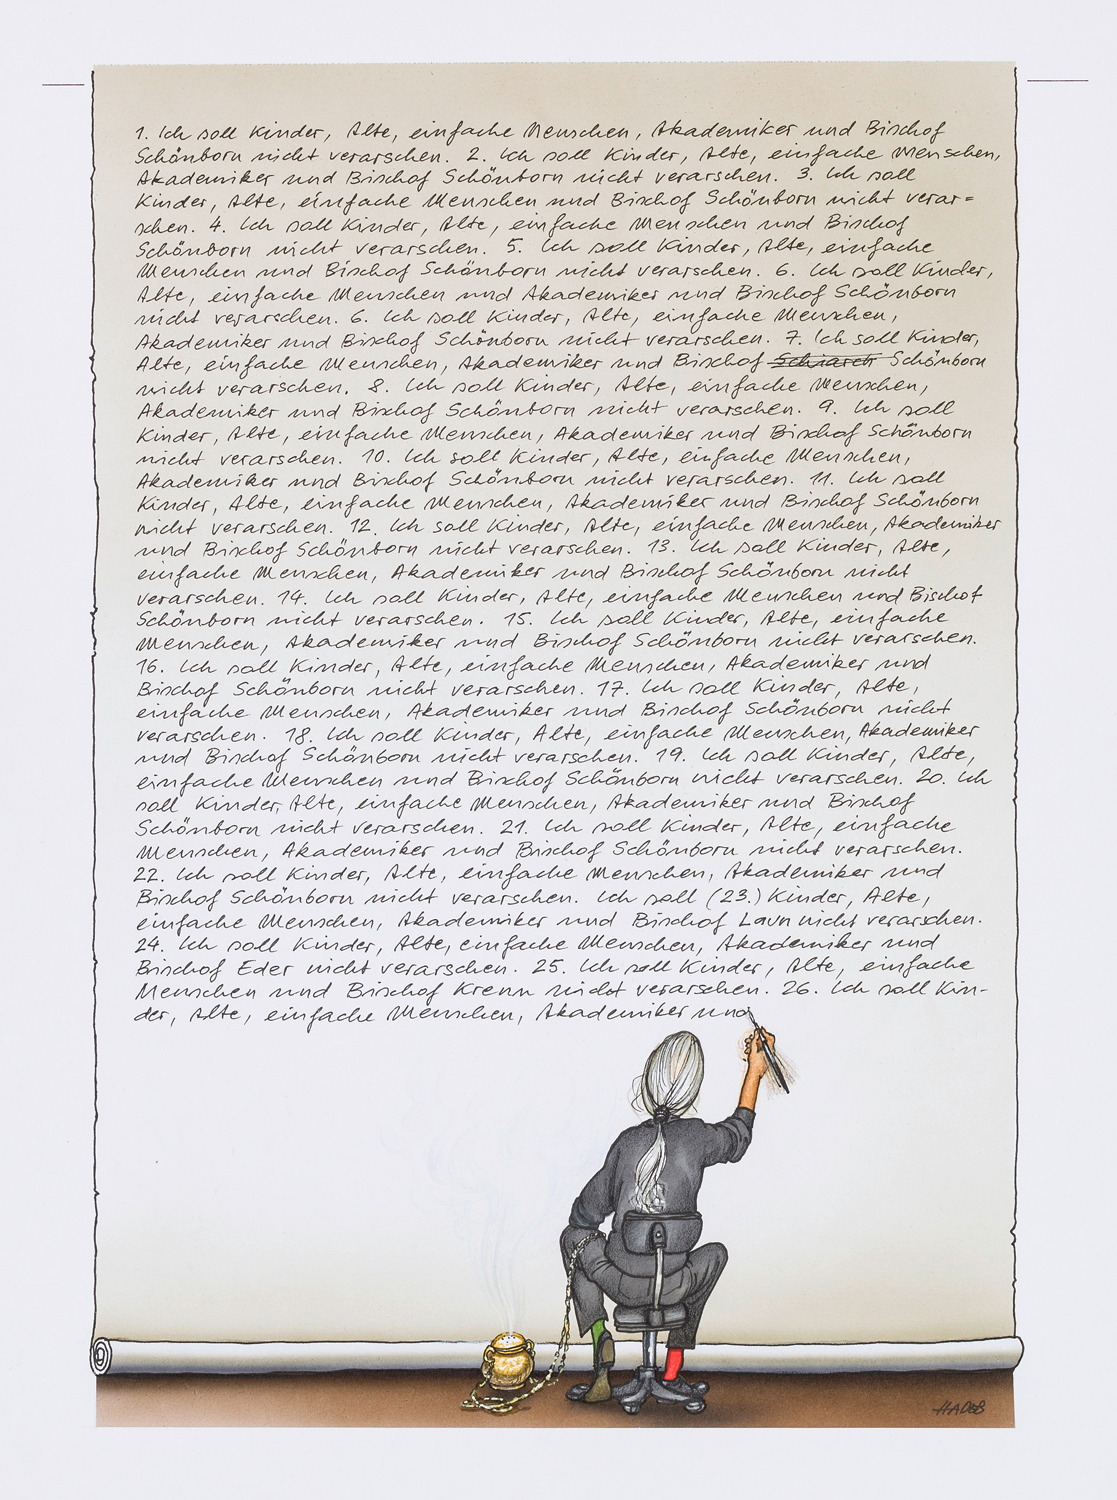 1. Ich soll Kinder, Alte, einfache Menschen, Akademiker und Bischof
Schönborn nicht verarschen. 2. Ich soll Kinder, Alte, einfache Menschen,
Akademiker und Bischof Schönborn nicht verarschen. 3. Ich soll
Kinder, Alte, einfache Menschen und Bischof Schönborn nicht verar=
schen. 4. Ich soll Kinder, Alte, einfache Menschen und Bischof
Schönborn nicht verarschen. 5. Ich soll Kinder, Alte, einfache
Menschen und Bischof Schönborn nicht verarschen. 6. Ich soll Kinder,
Alte, einfache Menschen und Akademiker und Bischof Schönborn
nicht verarschen. 6. Ich soll Kinder, Alte, einfache Menschen,
Akademiker und Bischof Schönborn nicht verarschen. 7. Ich soll Kinder,
Alte, einfache Menschen, Akademiker und Bischof Schönborn
nicht verarschen. 8. Ich soll Kinder, Alte, einfache Menschen,
Akademiker und Bischof Schönborn nicht verarschen. 9. Ich soll
Kinder, Alte, einfache Menschen, Akademiker und Bischof Schönborn
nicht verarschen. 10. Ich soll Kinder, Alte, einfache Menschen,
Akademiker und Bischof Schönborn nicht verarschen. 11. Ich soll
Kinder, Alte, einfache Menschen, Akademiker und Bischof Schönborn
nicht verarschen. 12. Ich soll Kinder, Alte, einfache Menschen, Akademiker
und Bischof Schönborn nicht verarschen. 13. Ich soll Kinder, Alte,
einfache Menschen, Akademiker und Bischof Schönborn nicht
verarschen. 14. Ich soll Kinder, Alte, einfache Menschen und Bischof
Schönborn nicht verarschen. 15. Ich soll Kinder, Alte, einfache
Menschen, Akademiker und Bischof Schönborn nicht verarschen.
16. Ich soll Kinder, Alte, einfache Menschen, Akademiker und
Bischof Schönborn nicht verarschen. 17. Ich soll Kinder, Alte,
einfache Menschen, Akademiker und Bischof Schönborn nicht
verarschen. 18. Ich soll Kinder, Alte, einfache Menschen, Akademiker
und Bischof Schönborn nicht verarschen. 19. Ich soll Kinder, Alte,
einfache Menschen und Bischof Schönborn nicht verarschen. 20. Ich
soll Kinder, Alte, einfache Menschen, Akademiker und Bischof
Schönborn nicht verarschen. 21. Ich soll Kinder, Alte, einfache
Menschen, Akademiker und Bischof Schönborn nicht verarschen.
22. Ich soll Kinder, Alte, einfache Menschen, Akademiker und
Bischof Schönborn nicht verarschen. Ich soll (23.) Kinder, Alte,
einfache Menschen, Akademiker und Bischof Laun nicht verarschen.
24. Ich soll Kinder, Alte, einfache Menschen, Akademiker und
Bischof Eder nicht verarschen. 25. Ich soll Kinder, Alte, einfache
Menschen und Bischof Krenn nicht verarschen. 26. Ich soll Kin-
der, Alte, einfache Menschen, Akademiker und